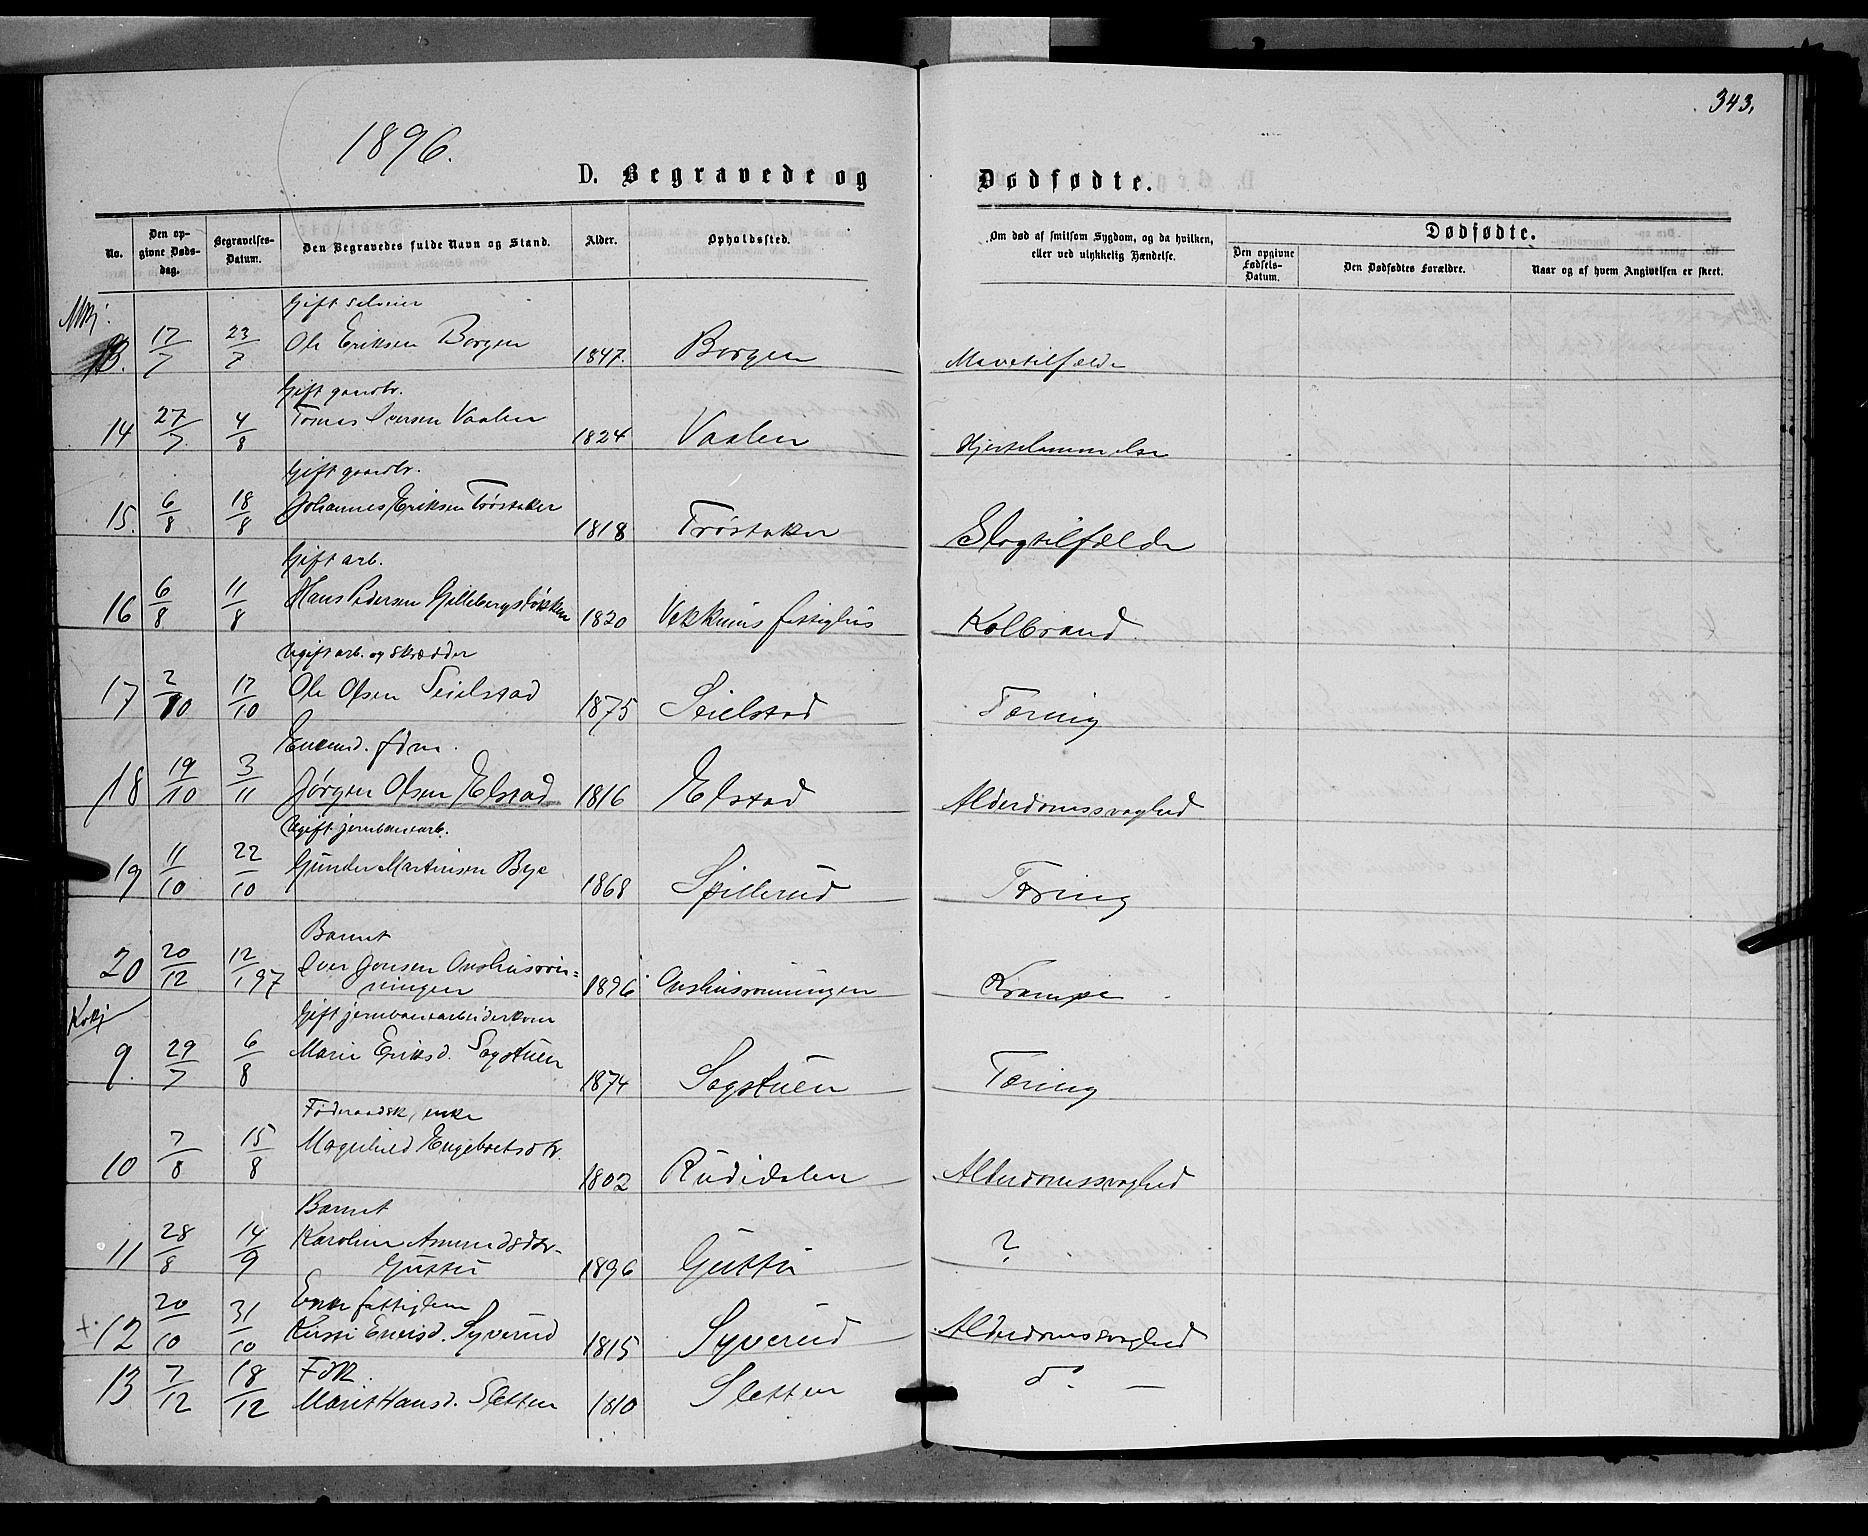 343.
1896.
D. Begravede og Dødfødte.
No.
Den opgivne Dødsdag.
Begravelses-Datum.
Den Begravedes fulde Navn og Stand.
Alder.
Opholdssted.
Om død af smitsom Sygdom, og da hvilken, eller ved ulykkelig Hændelse.
Dødfødte.
Den opgivne Fødsels-Datum.
Den Dødfødtes Forældre.
Naar og af hvem Angivelsen er skeet.
Mkj.
Gift selveier
13. 17/7 23/7 Ole Eriksen Borgen 1847. Borgen Mavetilfælde
Gift gaardbr.
14 27/7 4/8 Tomas Iversen Vaalen 1824 Vaalen Hjertelammelse
Gift gaardbr.
15. 6/8 18/8 Johannes Eriksen Trøstaker 1818 Trøstaker Slagtilfælde
Gift arb.
16 6/8 11/8 Hans Pedersen Gillebergsløkken 1820 Vekkums fattighus Kolbrand
Ugift arb. og skrædder
17 2/10 17/10 Ole Olsen Seielstad 1875 Seielstad Tæring
Enkemd. fdm.
18 19/10 3/11 Jørgen Olsen Elstad 1816 Elstad Alderdomssvaghed
Ugift jernbanearb.
19 11/10 22/10 Gunder Martinsen Bye 1868 Spillerud Tæring
Barnet
20 20/12 12/1 97 Iver Jonsen Onshusrøn-
ningen 1896 Onshusrønningen Krampe
Kvkj
Gift jernbanearbeiderkone
9. 29/7 6/8 Marie Eriksd. Sagstuen 1874 Sagstuen Tæring
Føderaadsk., enke
10 7/8 15/8 Magnhild Engebretsdtr. 1802 Rudidalen Alderdomssvaghed
Barnet
11 28/8 14/9 Karoline Amundsdtr.
Guttu 1896 Guttu ?
Enke fattiglem
+ 12 20/10 31/10 Kirsti Eneisd. Syverud 1815 Syverud Alderdomssvaghed
Fdk.
13 7/12 18/12 Marit Hansd. Sletten 1810 Sletten do. —